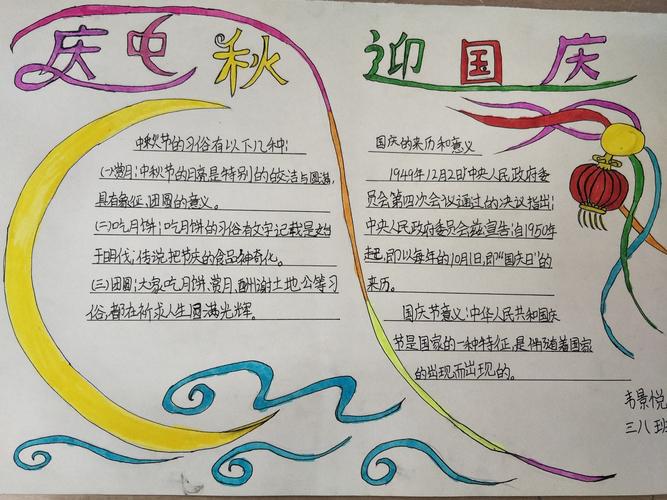 庆中秋
迎国庆
中秋节的习俗有以下几种:
(一)赏月:中秋节的月亮是特别的的皎洁与圆满,
具有象征,团圆的意义。
(二)吃月饼:吃月饼的习俗有文字记载是始
于明代;传说把节庆的食品神奇化。
(三)团圆:大家吃月饼、赏月、酬谢土地公等习
俗,都在祈求人生圆满光辉。
国庆的来历和意义
1949年12月2日中央人民政府委
员会第四次会议通过的决议指出:
中央人民政府委员会兹宣告:自1950年
起,即以每年的10月1日,即“国庆日”的
来历。
国庆节意义:中华人民共和国庆
节是国家的一种特征,是伴随着国家
的出现而出现的。
韦景悦
三八班